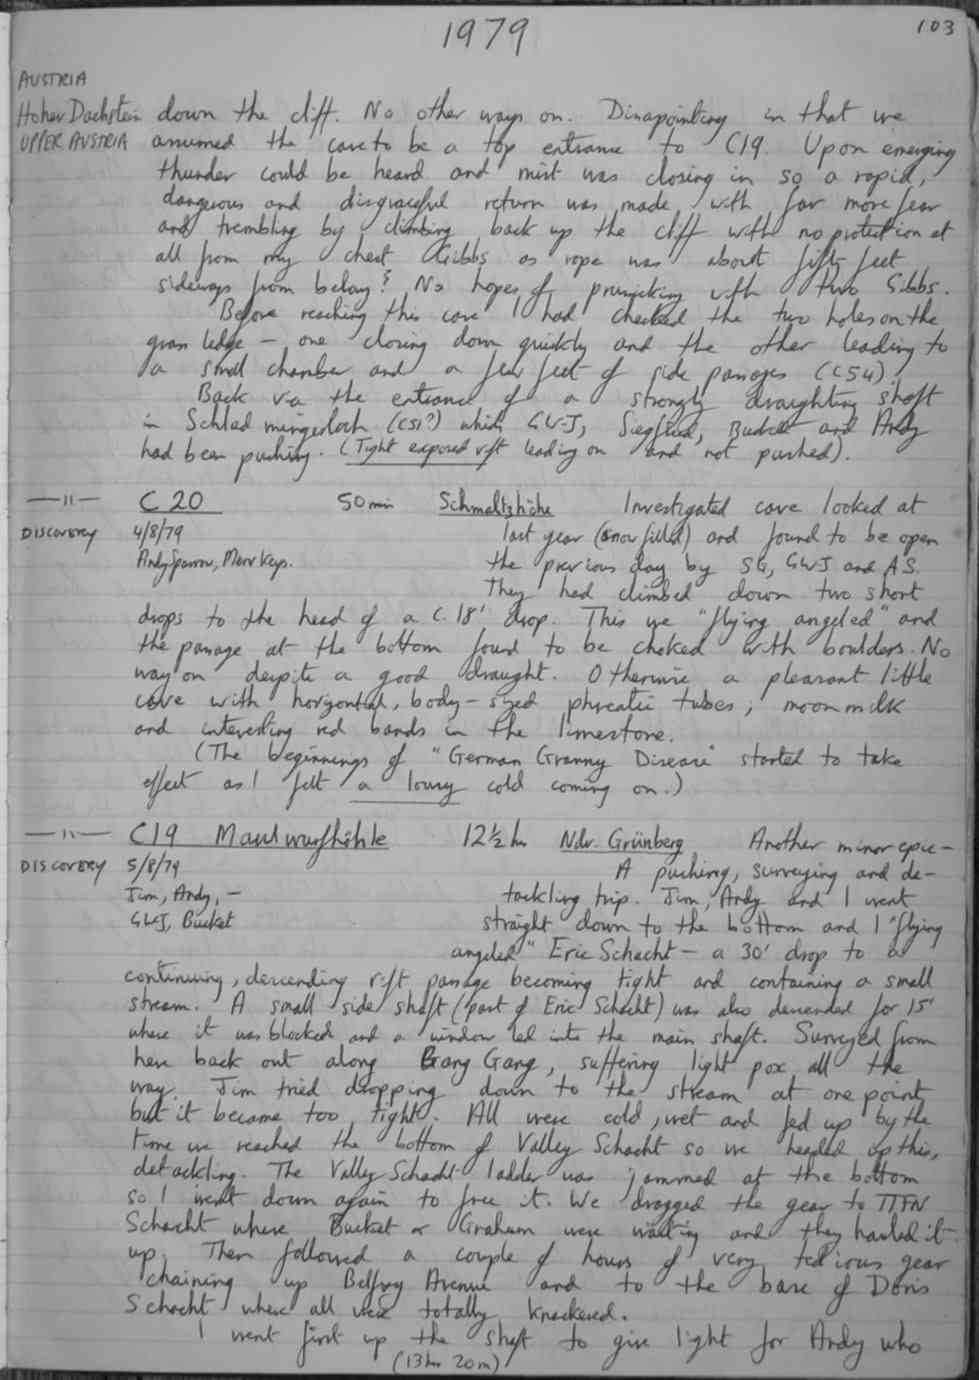 1979
103
AUSTRIA
Hoher Dachstein down the cliff. No other ways on. Dissapointing in that we
UPPER AUSTRIA assumed the cave to be a top entrance to C19. Upon emerging
thunder could be heard and mist was closing in so a rapid,
dangerous and disgraceful return was made with far more fear
and trembling by climbing back up the cliff with no protection at
all from my chest Gibbs as rope was about fifty feet
sideways from belay! No hopes of prussicking with two Gibbs.
Before reaching this cave I had checked the two holes on the
grass ledge - one closing down quickly and the other leading to
a small chamber and a few feet of side passages (C54).
Back via the entrance of a strongly draughting shaft
in Schladmingerloch (C51?) which GWJ, Siegfried, Bucket and Andy
had been pushing. (Tight exposed rift leading on and not pushed).
—"— C20 50 min Schmeltzhöhe Investigated cave looked at
DISCOVERY 4/8/79 last year (snow filled) and found to be open
Andy Sparrow, Merv Keys. the previous day by SG, GWJ and AS.
They had climbed down two short
drops to the head of a c. 18' drop. This we "flying angeled" and
the passage at the bottom found to be choked with boulders. No
way on despite a good draught. Otherwise a pleasant little
cave with horizontal, body-sized phreatic tubes, moonmilk
and interesting red bands in the limestone.
(The beginnings of "German Granny Disease" started to take
effect as I felt a lousy cold coming on.)
—"— C19 Maulwurfhöhle 12½ hr Ndr. Grünberg Another minor epic -
DISCOVERY 5/8/79 A pushing, surveying and de-
Jim, Andy, - tackling trip. Jim, Andy and I went
GWJ, Bucket straight down to the bottom and I "flying
angeled" Eric Schacht - a 30' drop to a
continuing, descending rift passage becoming tight and containing a small
stream. A small side shaft (part of Eric Schacht) was also descended for 15'
where it was blocked and a window led into the main shaft. Surveyed from
here back out along Gang Gang, suffering light pox all the
way. Jim tried dropping down to the stream at one point
but it became too tight. All were cold, wet and fed up by the
time we reached the bottom of Valley Schacht so we headed up this,
detackling. The Valley Schacht ladder was jammed at the bottom
so I went down again to free it. We dragged the gear to TTFN
Schacht where Bucket & Graham were waiting and they hauled it
up. Then followed a couple of hours of very tedious gear
chaining up Belfry Avenue and to the base of Doris
Schacht where all were totally knackered.
I went first up the shaft to give light for Andy who
(13hr 20m)